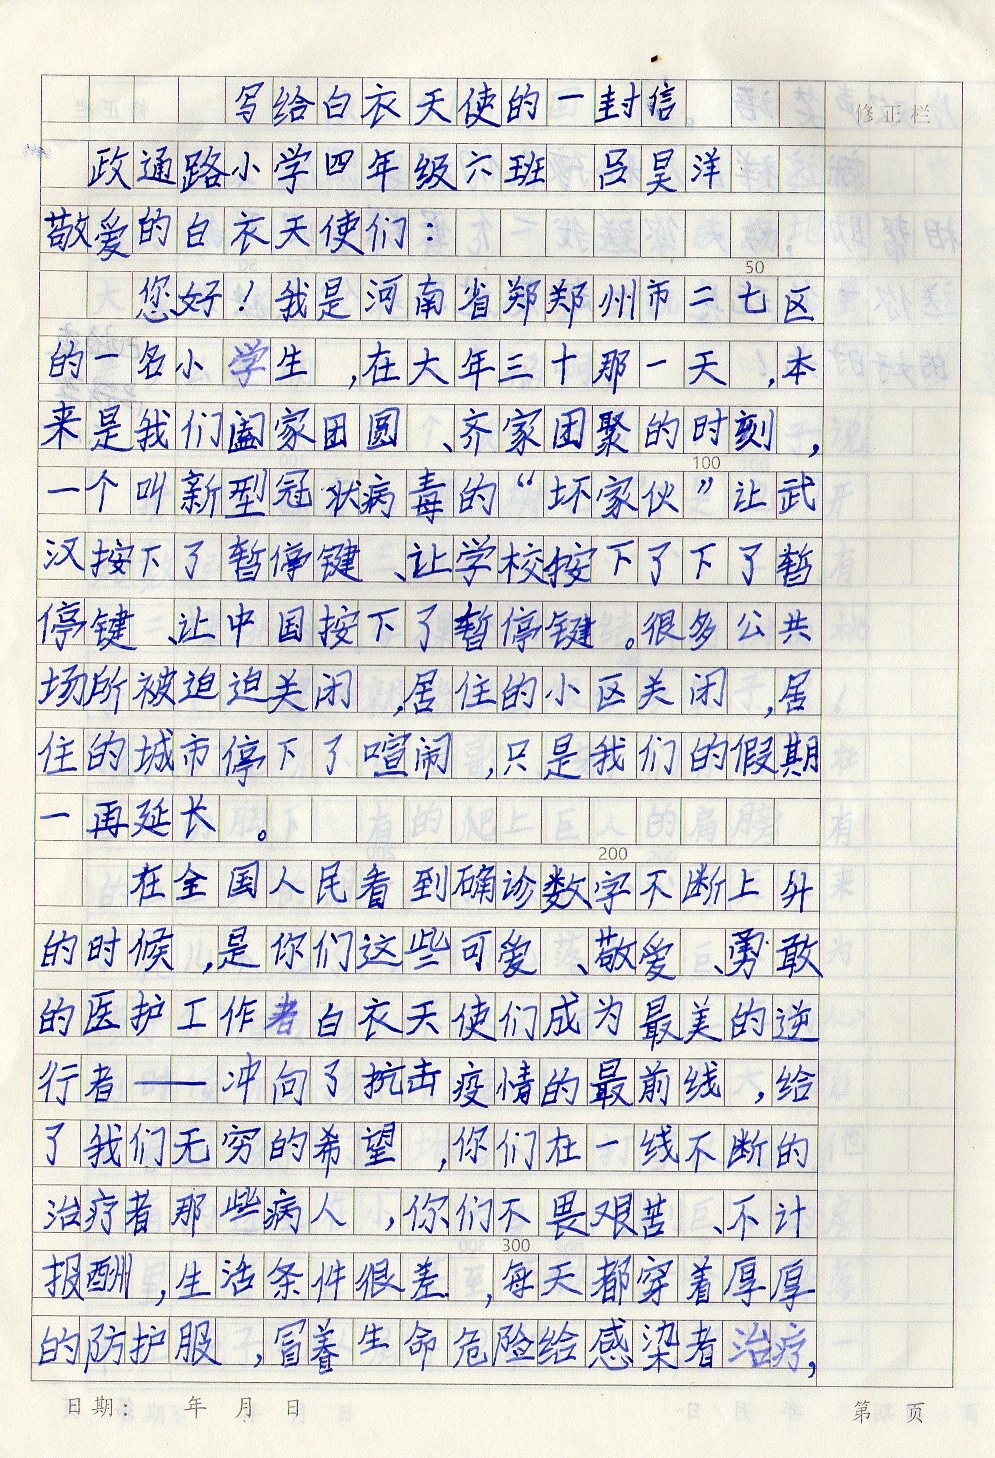 写给白衣天使的一封信。
修正栏
政通路小学四年级六班 吕昊洋
敬爱的白衣天使们：
50
您好！我是河南省郑郑州市二七区
的一名小学生，在大年三十那一天，本
来是我们阖家团圆、齐家团聚的时刻，
100
一个叫新型冠状病毒的“坏家伙”让武
汉按下了暂停键、让学校按下了下了暂
停键、让中国按下了暂停键。很多公共
场所被迫迫关闭，居住的小区关闭，居
住的城市停下了喧闹，只是我们的假期
一再延长。
200
在全国人民看到确诊数字不断上升
的时候，是你们这些可爱、敬爱、勇敢
的医护工作者白衣天使们成为最美的逆
行者——冲向了抗击疫情的最前线，给
了我们无穷的希望，你们在一线不断的
治疗着那些病人，你们不畏艰苦、不计
300
报酬，生活条件很差，每天都穿着厚厚
的防护服，冒着生命危险给感染者治疗，
日期： 年 月 日
第 页